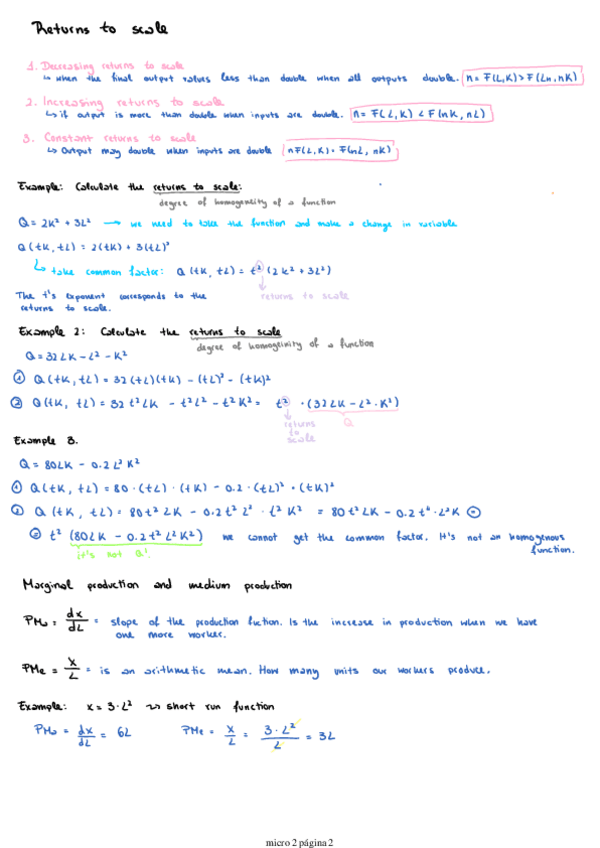 Returns to scale
1. Decreasing returns to scale
↳ when the final output values less than double when all outputs double. n = F(L,K) > F(Ln, nK)
2. Increasing returns to scale
↳ if output is more than double when inputs are double. n = F(L,K) < F(nK, nL)
3. Constant returns to scale
↳ Output may double when inputs are double nF(L,K) = F(nL, nK)
Example: Calculate the returns to scale:
degree of homogeneity of a function
Q = 2K² + 3L² → we need to take the function and make a change in variable
Q(tK, tL) = 2(tK) + 3(tL)²
↳ take common factor: Q(tK, tL) = t² (2K² + 3L²)
The t's exponent corresponds to the returns to scale
returns to scale.
Example 2: Calculate the returns to scale
degree of homogeinity of a function
Q = 32LK - L² - K²
① Q(tK, tL) = 32(tL)(tK) - (tL)² - (tK)²
② Q(tK, tL) = 32t²LK - t²L² - t²K² = t² · (32LK - L² · K²)
returns Q
to
scale
Example 3.
Q = 80LK - 0.2L²K²
① Q(tK, tL) = 80 · (tL) · (tK) - 0.2 · (tL)² · (tK)²
② Q(tK, tL) = 80t²LK - 0.2t²L² · t²K² = 80t²LK - 0.2t⁴ · L²K =
= t² (80LK - 0.2t²L²K²) we cannot get the common factor. It's not an homogenous
it's not Q! function.
Marginal production and medium production
PMa = dx/dL = slope of the production fuction. Is the increase in production when we have
one more worker.
PMe = x/L = is an arithmetic mean. How many units our workers produce.
Example: x = 3·L² ↝ short run function
PMa = dx/dL = 6L PMe = x/L = 3·L²/L = 3L
micro 2 página 2